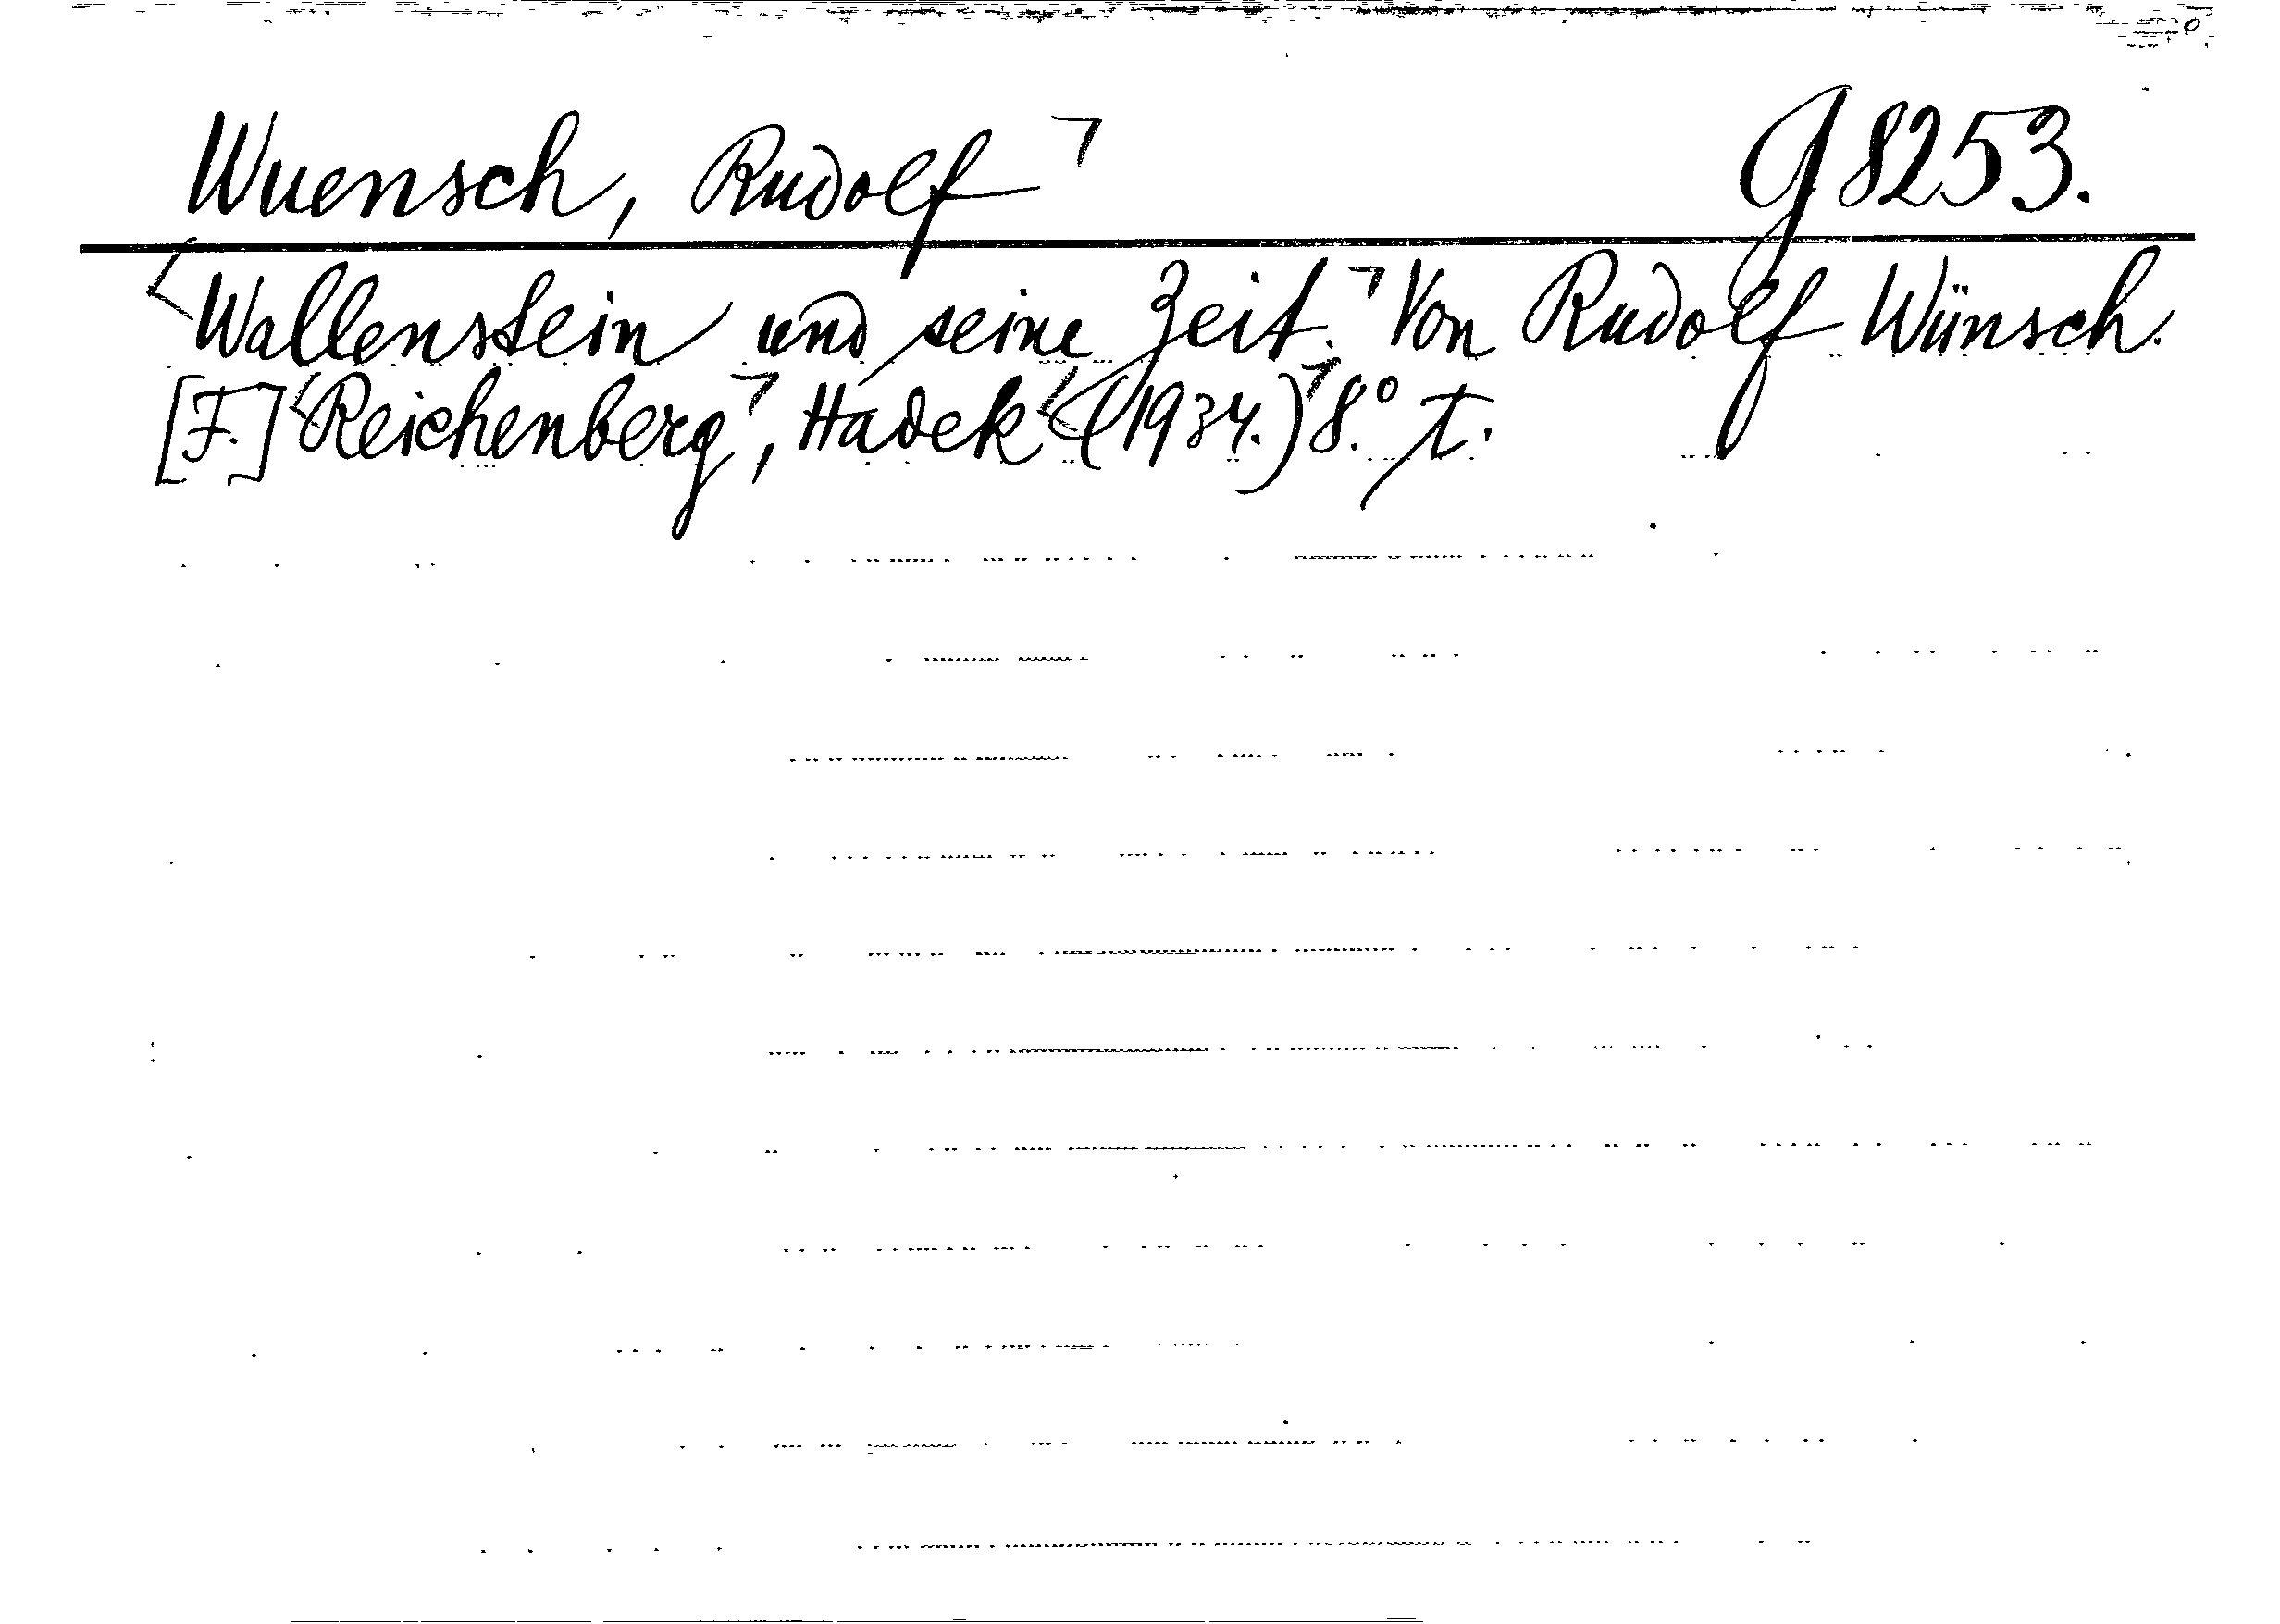 Wuensch, Rudolf G 8253.
Wallenstein und seine Zeit. Von Rudolf Wünsch.
[F.] Reichenberg, Hadek (1934.) 8.° T.